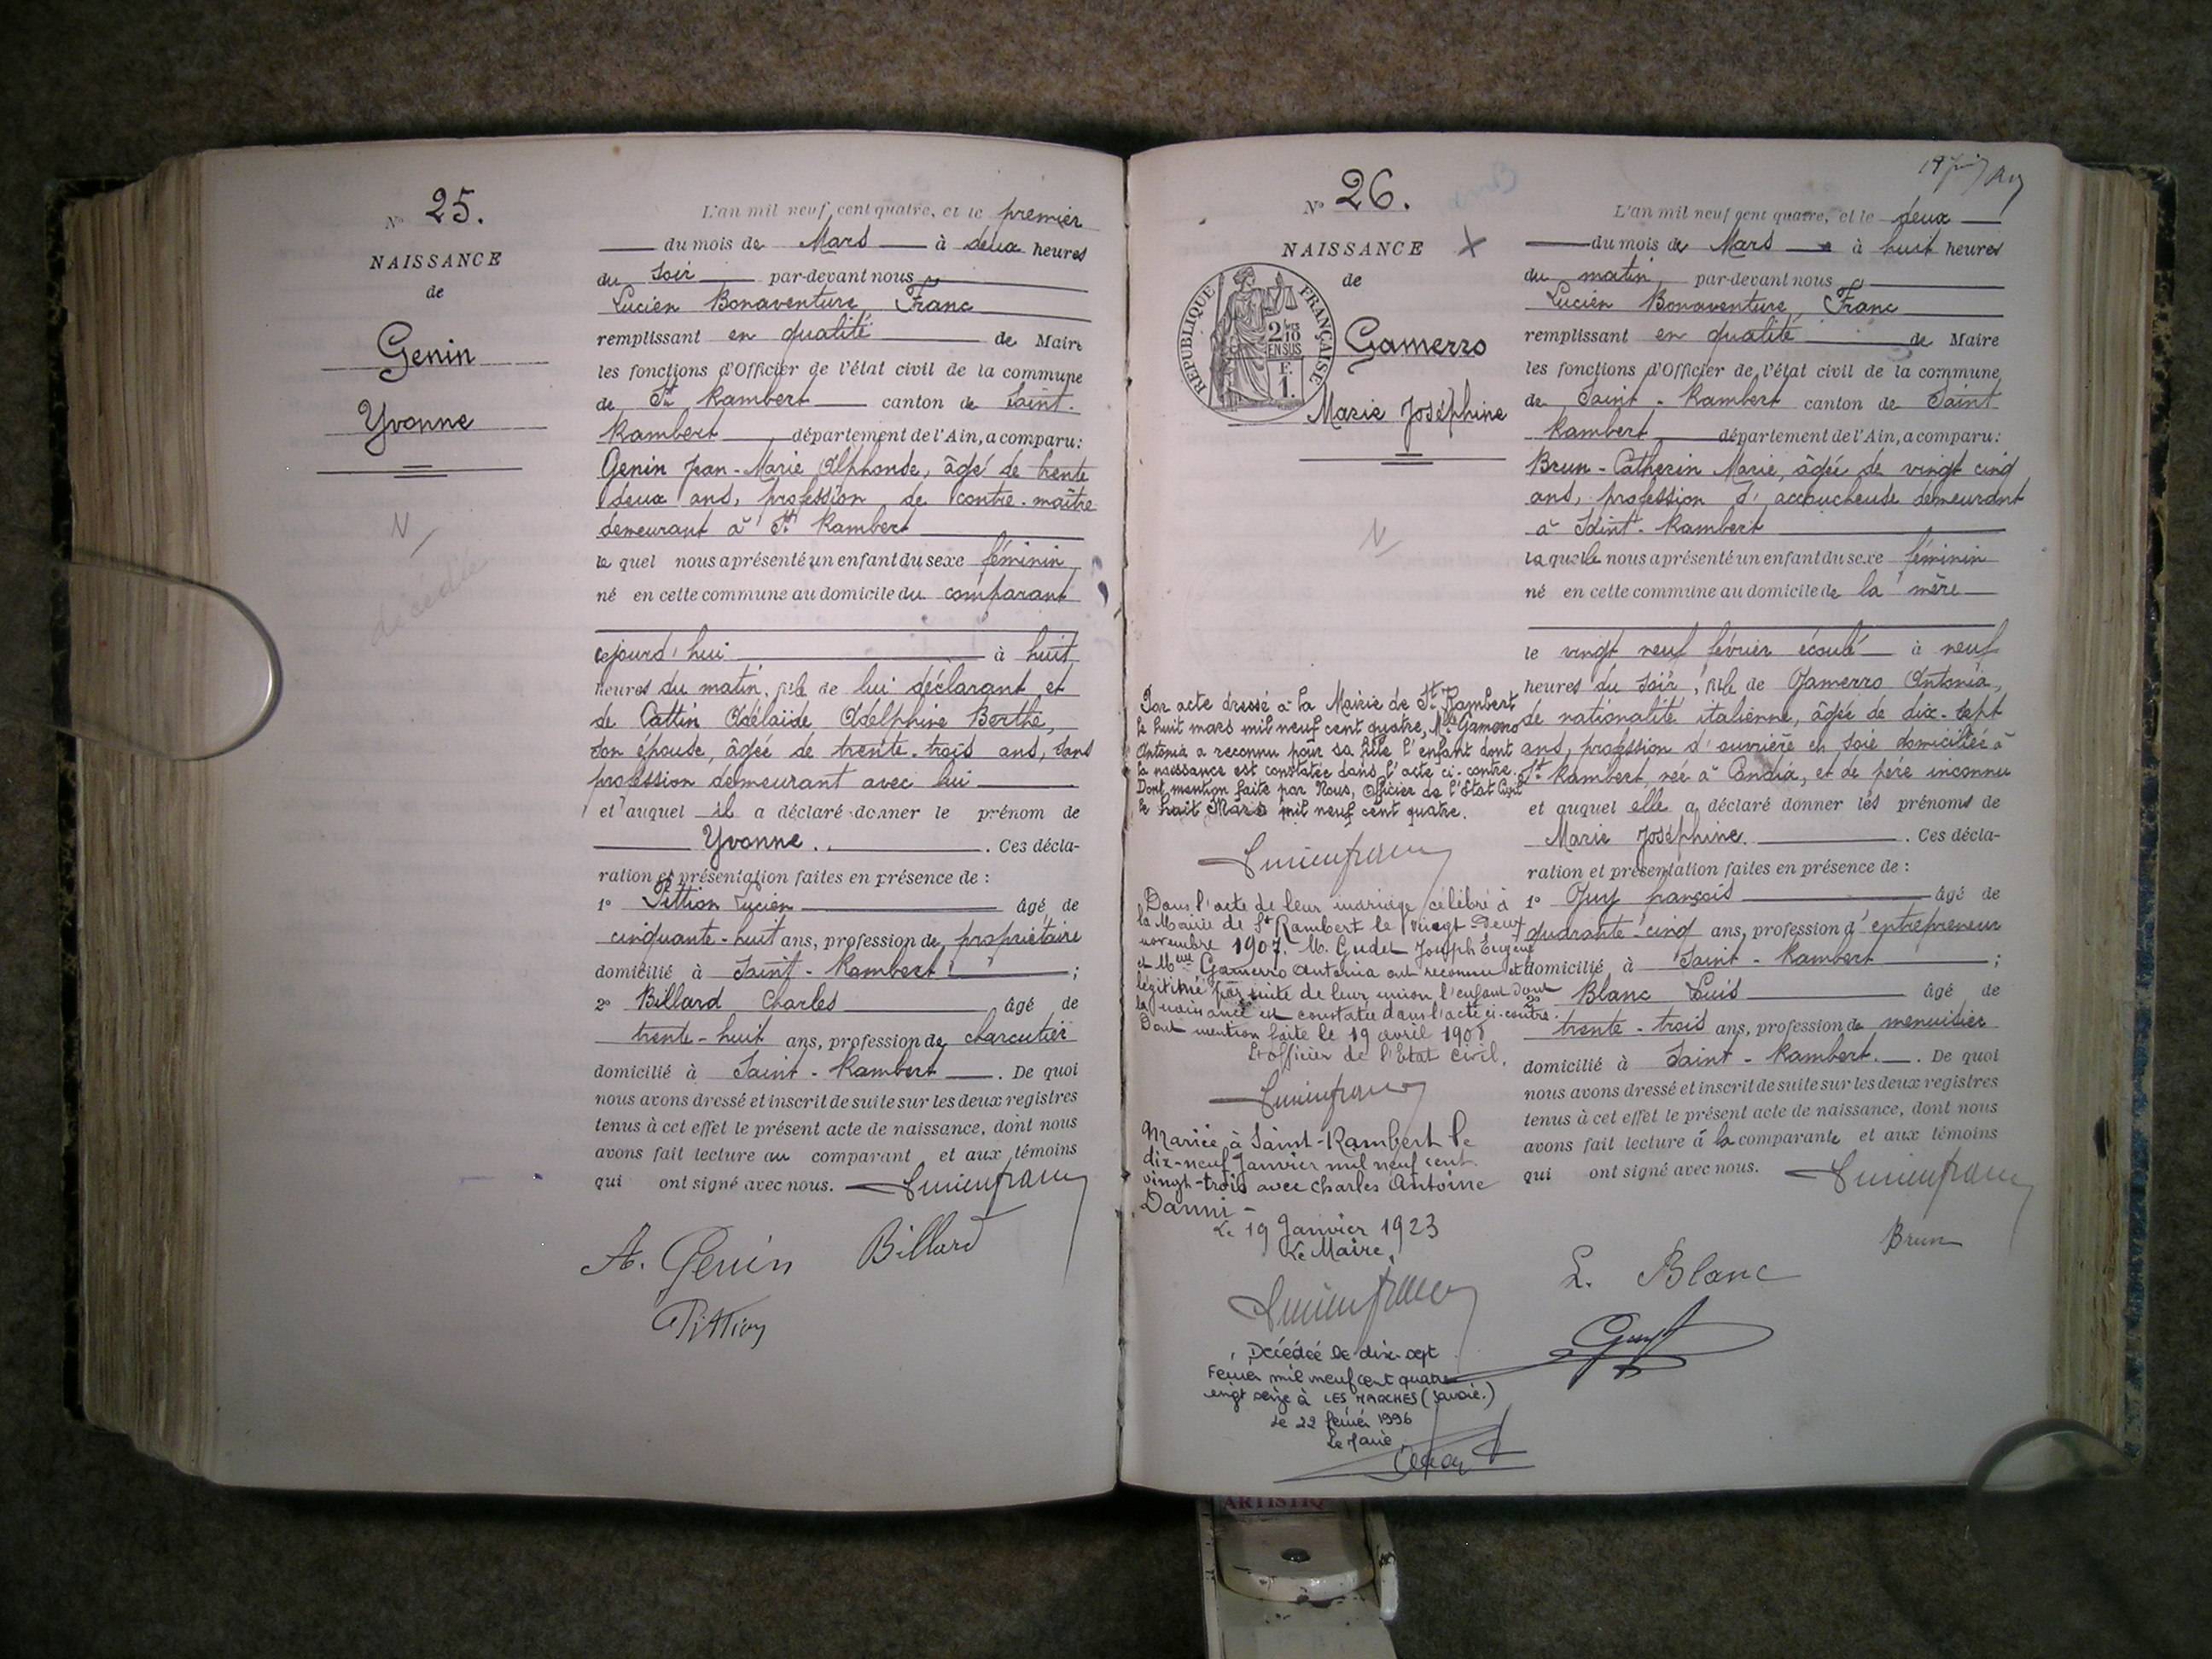 N° 25.
NAISSANCE
de
Genin
Yvonne
N
décédée
L'an mil neuf cent quatre, et le premier
du mois de Mars à deux heures
du soir par-devant nous
Lucien Bonaventure Franc
remplissant en qualité de Maire
les fonctions d'Officier de l'état civil de la commune
de St Rambert canton de Saint-
Rambert département de l'Ain, a comparu:
Genin Jean-Marie Alphonse, âgé de trente
deux ans, profession de contre-maître
demeurant à St Rambert
le quel nous a présenté un enfant du sexe féminin
né en cette commune au domicile du comparant
cejourd'hui à huit
heures du matin, fille de lui déclarant et
de Cattin Adélaïde Adelphine Berthe,
son épouse, âgée de trente-trois ans, sans
profession demeurant avec lui
et auquel il a déclaré donner le prénom de
Yvonne. . Ces décla-
ration et présentation faites en présence de :
1° Pittion Lucien âgé de
cinquante-huit ans, profession de propriétaire
domicilié à Saint-Rambert ;
2° Billard Charles âgé de
trente-huit ans, profession de charcutier
domicilié à Saint-Rambert . De quoi
nous avons dressé et inscrit de suite sur les deux registres
tenus à cet effet le présent acte de naissance, dont nous
avons fait lecture au comparant et aux témoins
qui ont signé avec nous. Lucien franc
A. Genin Billard
Pittion
N° 26.
NAISSANCE
de
REPUBLIQUE FRANÇAISE
2/10
EN SUS
F.
1.
Gamerro
Marie Joséphine
N
Par acte dressé à la Mairie de St Rambert
le huit mars mil neuf cent quatre, Mlle Gamerro
Antonia a reconnu pour sa fille l'enfant dont
la naissance est constatée dans l'acte ci-contre.
Dont mention faite par Nous, Officier de l'Etat Civil
le huit Mars mil neuf cent quatre.
Lucien franc
Dans l'acte de leur mariage célébré à
la Mairie de St Rambert le vingt deux
novembre 1907, M. Gudet Joseph Eugène
et Mme Gamerro Antonia ont reconnu et
légitimé par suite de leur union l'enfant dont
la naissance est constatée dans l'acte ci-contre.
Dont mention faite le 19 avril 1908
L'officier de l'Etat civil.
Lucien franc
Mariée à Saint-Rambert le
dix-neuf Janvier mil neuf cent
vingt-trois avec Charles Antoine
Danni -
Le 19 Janvier 1923
Le Maire,
Lucien franc
Décédée le dix-sept
Février mil neuf cent quatre
vingt seize à LES MARCHES (Savoie.)
Le 22 février 1996
Le Maire
L'an mil neuf cent quatre, et le deux
du mois de Mars à huit heures
du matin par-devant nous
Lucien Bonaventure Franc
remplissant en qualité de Maire
les fonctions d'Officier de l'état civil de la commune
de Saint-Rambert canton de Saint
Rambert département de l'Ain, a comparu:
Brun-Catherin Marie, âgée de vingt cinq
ans, profession d'accoucheuse demeurant
à Saint-Rambert
laquelle nous a présenté un enfant du sexe féminin
né en cette commune au domicile de la mère
le vingt neuf février écoulé à neuf
heures du soir, fille de Gamerro Antonia,
de nationalité italienne, âgée de dix-sept
ans, profession d'ouvrière en soie domiciliée à
St Rambert, née à Candia, et de père inconnu
et auquel elle a déclaré donner les prénoms de
Marie Joséphine. . Ces décla-
ration et présentation faites en présence de :
1° Guy françois âgé de
quarante-cinq ans, profession d'entrepreneur
domicilié à Saint-Rambert ;
2° Blanc Louis âgé de
trente-trois ans, profession de menuisier
domicilié à Saint-Rambert. . De quoi
nous avons dressé et inscrit de suite sur les deux registres
tenus à cet effet le présent acte de naissance, dont nous
avons fait lecture à la comparante et aux témoins
qui ont signé avec nous. Lucien franc
Brun
L. Blanc
Guy
ARTISTIQ